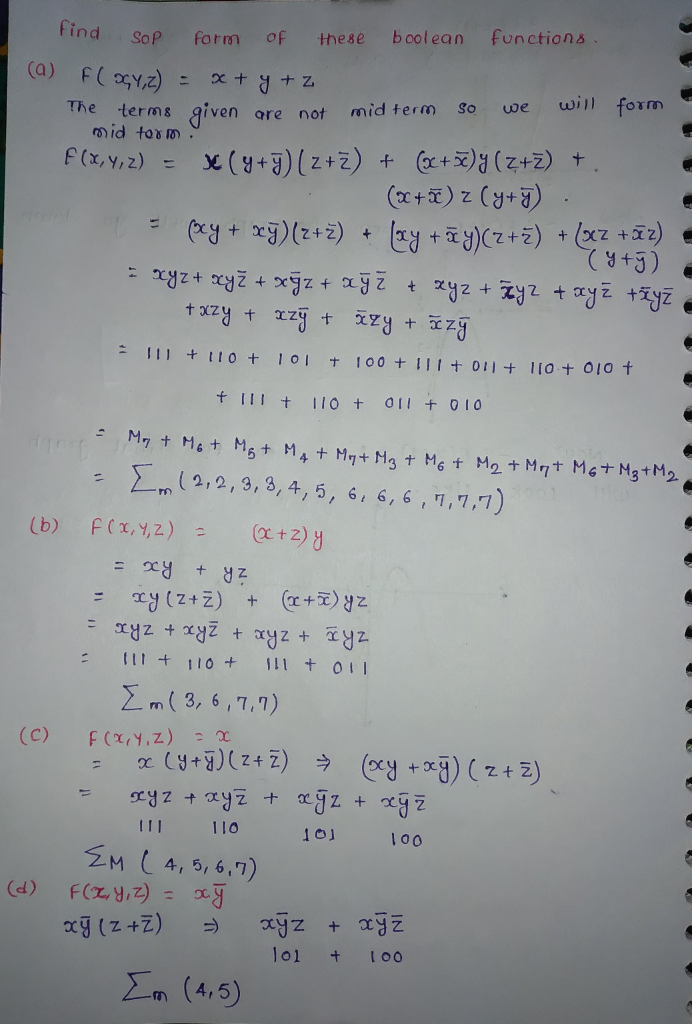 Find SOP form of these boolean functions.
(a) F(x,y,z) = x + y + z
The terms given are not midterm so we will form
mid torm.
F(x,y,z) = x(y+ȳ)(z+z̄) + (x+x̄)y(z+z̄) +
(x+x̄) z (y+ȳ).
= (xy + xȳ)(z+z̄) + (xy + x̄y)(z+z̄) + (xz + x̄z)
(y+ȳ)
= xyz + xyz̄ + xȳz + xȳz̄ + xyz + x̄yz + xyz̄ + x̄yz̄
+ xzy + xzȳ + x̄zy + x̄zȳ
= 111 + 110 + 101 + 100 + 111 + 011 + 110 + 010 +
+ 111 + 110 + 011 + 010
= M7 + M6 + M5 + M4 + M7 + M3 + M6 + M2 + M7 + M6 + M3 + M2
= Σm (2,2,3,3,4,5,6,6,6,7,7,7)
(b) F(x,y,z) = (x+z)y
= xy + yz
= xy(z+z̄) + (x+x̄)yz
= xyz + xyz̄ + xyz + x̄yz
= 111 + 110 + 111 + 011
Σm(3,6,7,7)
(c) F(x,y,z) = x
= x(y+ȳ)(z+z̄) ⇒ (xy + xȳ)(z+z̄)
= xyz + xyz̄ + xȳz + xȳz̄
111 110 101 100
ΣM (4,5,6,7)
(d) F(x,y,z) = xȳ
xȳ(z+z̄) ⇒ xȳz + xȳz̄
101 + 100
Σm (4,5)